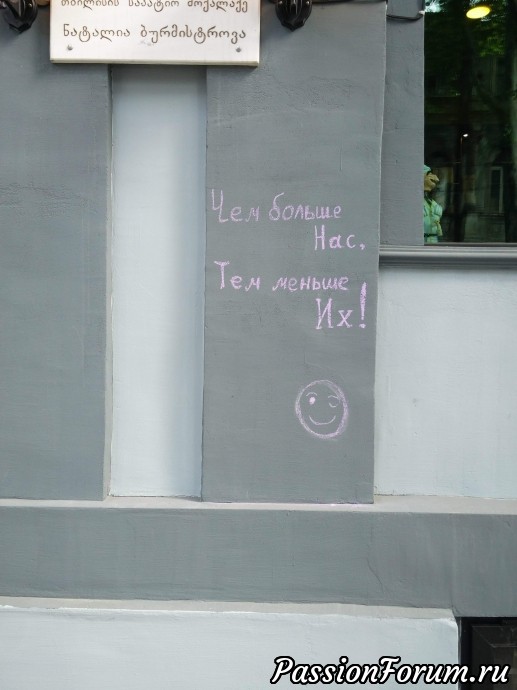 თბილისის საპატიო მოქალაქე
ნატალია ბურმისტროვა
Чем больше
Нас,
Тем меньше
Их!
PassionForum.ru